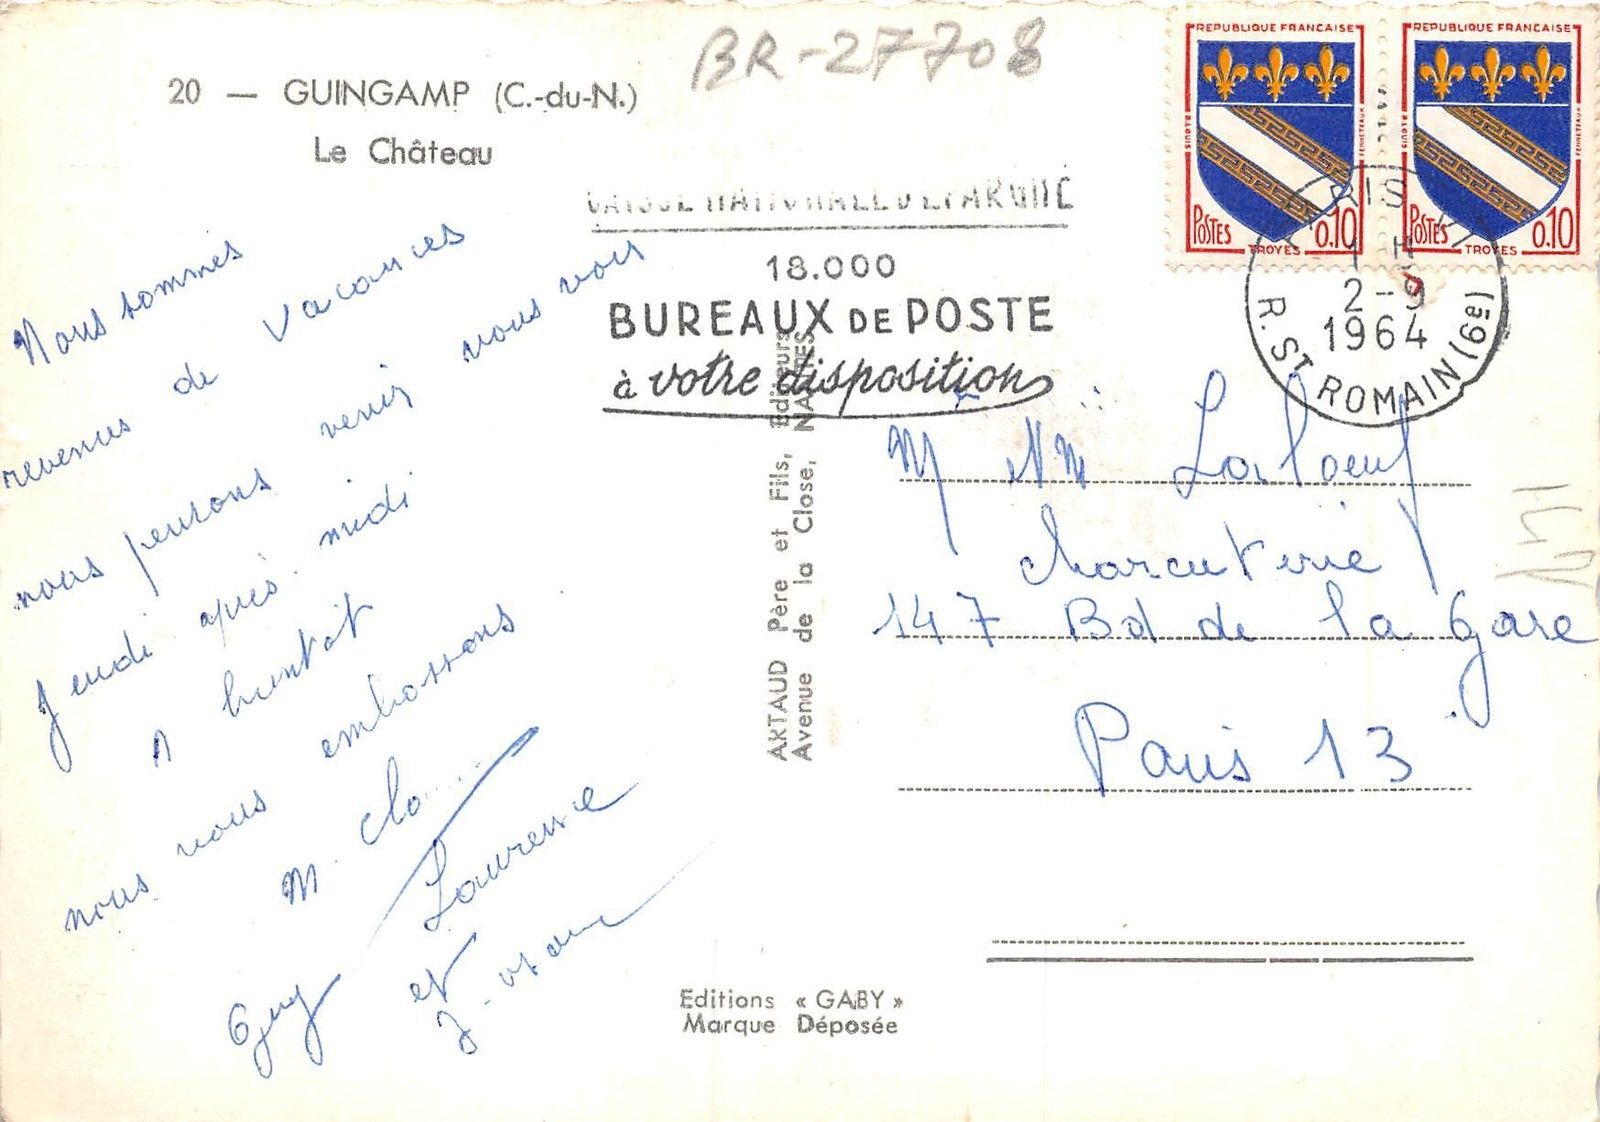 BR-27708
20 — GUINGAMP (C.-du-N.)
Le Château
CAISSE NATIONALE D'EPARGNE
18.000
BUREAUX DE POSTE
à votre disposition
REPUBLIQUE FRANÇAISE
POSTES 0.10
TROYES
REPUBLIQUE FRANÇAISE
POSTES 0.10
TROYES
PARIS
2-9
1964
R. ST ROMAIN (6e)
Nous sommes
revenus de vacances
nous pensons venir vous voir
Jeudi après midi
A bientôt
nous vous embrassons
M.
Guy Laurence
et
ARTAUD Père et Fils, Editeurs
Avenue de la Close, NANTES
M Mm Laloeuf
charcuterie
147 Bd de la Gare
Paris 13
Editions « GABY »
Marque Déposée